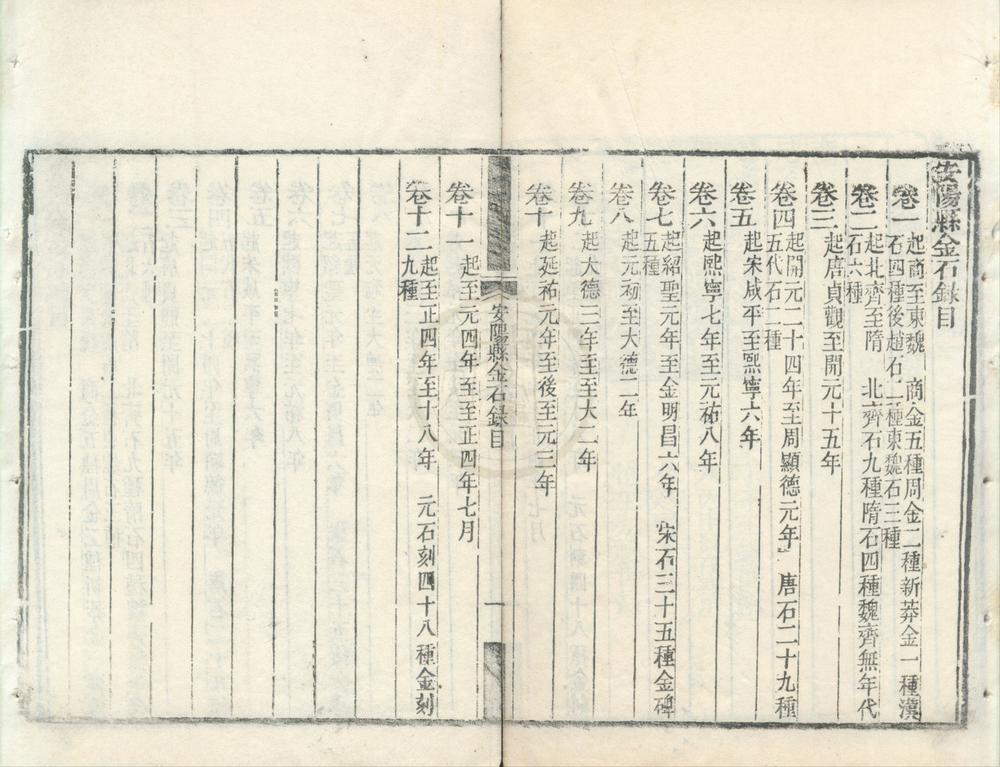 安陽縣金石錄目
卷一 起商至東魏 商金五種周金二種新莽金一種漢
石四種後趙石二種東魏石三種
卷二 起北齊至隋 北齊石九種隋石四種魏齊無年代
石六種
卷三 起唐貞觀至開元十五年
卷四 起開元二十四年至周顯德元年 唐石二十九種
五代石二種
卷五 起宋咸平至熙寧六年
卷六 起熙寧七年至元祐八年
卷七 起紹聖元年至金明昌六年 宋石三十五種金碑
五種
卷八 起元初至大德二年
卷九 起大德三年至至大二年
卷十 起延祐元年至後至元三年
安陽縣金石錄目 一
卷十一 起至元四年至至正四年七月
卷十二 起至正四年至十八年 元石刻四十八種金刻
九種